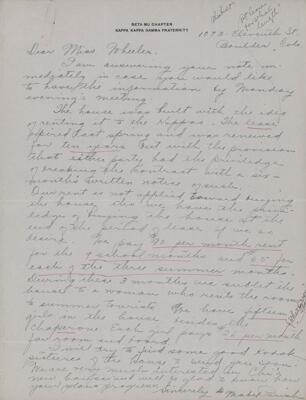 BETA MU CHAPTER
KAPPA KAPPA GAMMA FRATERNITY
1073 Eleventh St.
Boulder, Colo.
Dear Miss Wheeler,
I am answering your note im-
mediately in case you would like
to have the information by Monday
evening's meeting.
The house was built with the idea
of renting it to the Kappas. The lease
expired last spring and was renewed
for ten years but with the provision
that either party had the priviledge
of breaking the contract with a six-
month's written notice of such.
Our rent is not applied toward buying
the house, tho we have the
of buying the house at the
end of the period of lease if we so
desire. We pay per month rent
for the 9 school months and
each of the three summer months.
During these 3 months we sublet the
house to a woman who rents the rooms
to summer tourists. We have fifteen
girls in the house besides the
Chaperone. Each girl pays per month
for room and board.
I will try to find some good kodak
pictures of the house & send you soon.
We are very much interested in Chi's
new house and will be glad to know how
your plans progress.
Sincerely,
Mabel